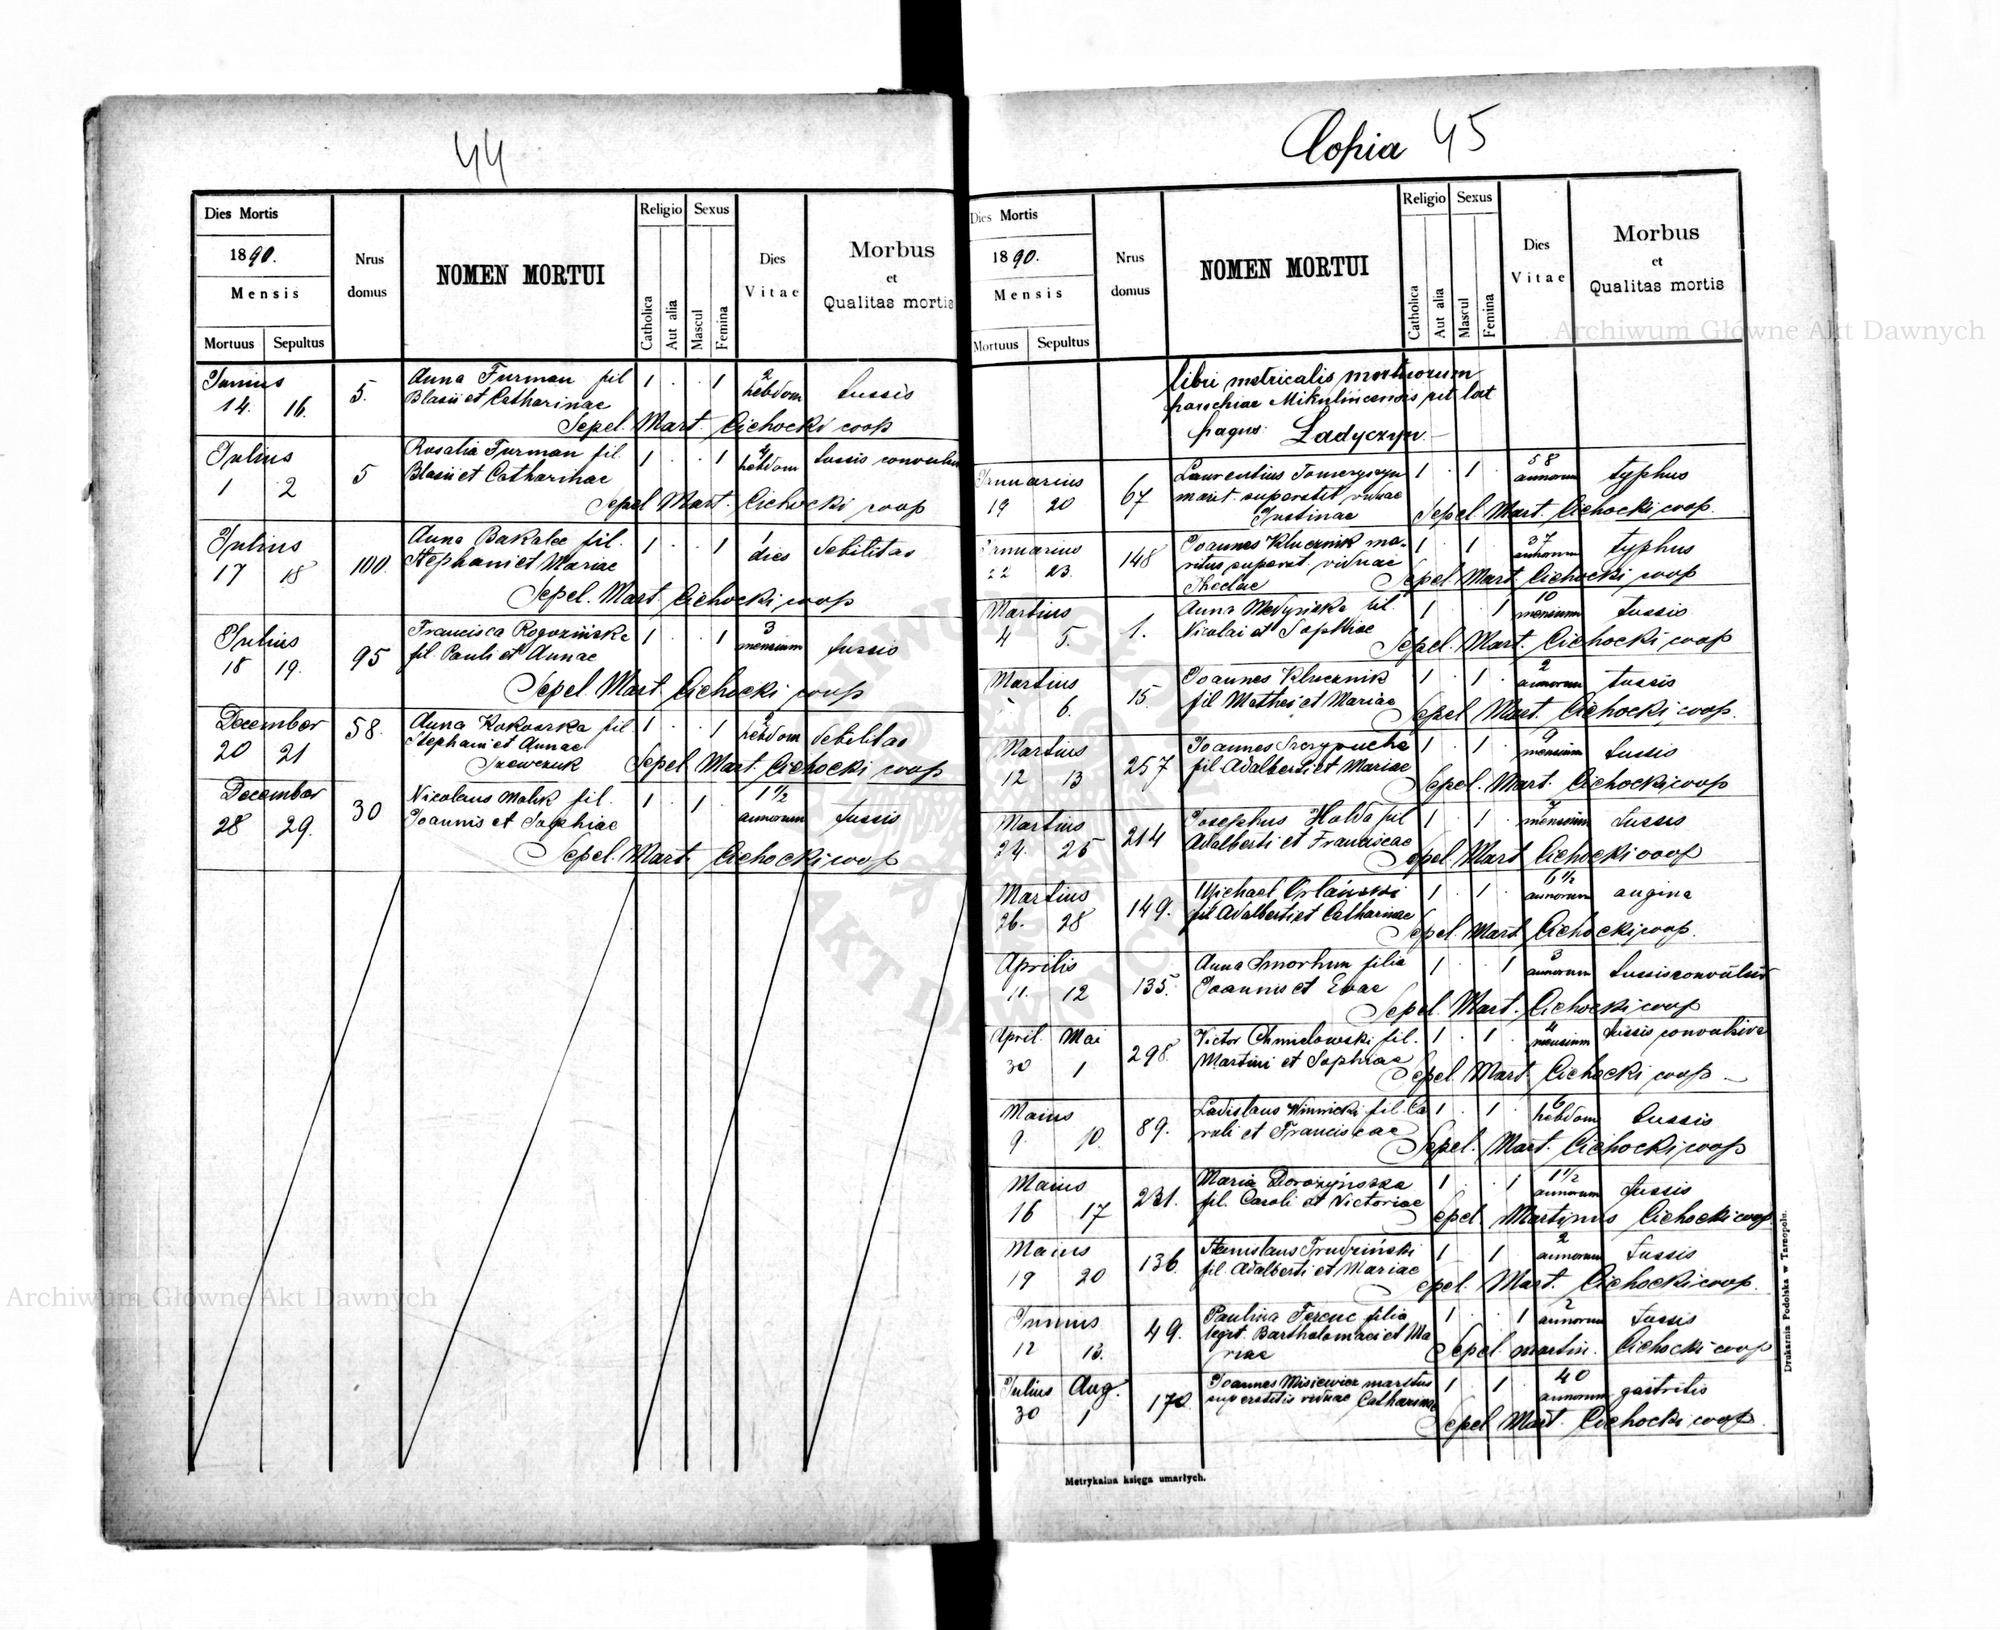 44
Dies Mortis
1890.
Mensis
Mortuus Sepultus
Nrus domus
NOMEN MORTUI
Religio
Catholica
Aut alia
Sexus
Mascul
Femina
Dies Vitae
Morbus
et
Qualitas mortis
Junius 14. 16. 5. Anna Furman fil 1 . . 1 2 hebdom tussis
Blasii et Catharinae
Sepel. Mart. Cichocki coop
Julius 1 2 5 Rosalia Furman fil. 1 . . 1 4 hebdom tussis convuls
Blasii et Catharinae
Sepel Mart. Cichocki coop
Julius 17 18 100. Anna Bakalec fil. 1 . . 1 1 dies debilitas
Stephani et Mariae
Sepel. Mart. Cichocki coop
Julius 18 19. 95 Francisca Rogozińska 1 . . 1 3 mensium tussis
fil. Pauli et Annae
Sepel Mart. Cichocki coop
December 20 21 58. Anna Kokoszka fil. 1 . . 1 2 hebdom debilitas
Stephani et Annae
Szewczuk Sepel Mart. Cichocki coop
December 28 29. 30 Nicolaus Malik fil. 1 . 1 . 1 1/2 annorum tussis
Joannis et Sophiae
Sepel. Mart. Cichocki coop
Copia 45
Dies Mortis
1890.
Mensis
Mortuus Sepultus
Nrus domus
NOMEN MORTUI
Religio
Catholica
Aut alia
Sexus
Mascul
Femina
Dies Vitae
Morbus
et
Qualitas mortis
libri metricalis mortuorum
parochiae Mikulincensis rit lat
pagus: Ladyczyn.
Januarius 19 20 67 Laurentius Tomczyszyn 1 . 1 . 58 annorum typhus
marit. superstit. viduae
Justinae Sepel. Mart. Cichocki coop.
Januarius 22 23. 148 Joannes Klucznik ma- 1 . 1 . 37 annorum typhus
ritus superst. viduae
Theclae Sepel Mart. Cichocki coop
Martius 4 5. 1. Anna Medyńska fil. 1 . . 1 10 mensium tussis
Nicolai et Sophiae
Sepel. Mart. Cichocki coop
Martius 6. 15. Joannes Klucznik 1 . 1 . 2 annorum tussis
fil Mathei et Mariae
Sepel Mart. Cichocki coop.
Martius 12 13 257 Joannes 1 . 1 . 9 mensium tussis
fil. Adalberti et Mariae
Sepel. Mart. Cichocki coop
Martius 24. 25 214 Josephus Hołda fil 1 . 1 . mensium tussis
Adalberti et Franciscae
Sepel Mart Cichocki coop
Martius 26. 28 149. Michael 1 . 1 . 6 1/2 annorum angina
fil Adalberti et Catharinae
Sepel Mart. Cichocki coop.
Aprilis 11. 12 135. Anna Smorhun filia 1 . . 1 3 annorum tussis convulsiv
Joannis et Evae
Sepel. Mart. Cichocki coop
April. 30 Mai 1 298. Victor Chmielowski fil. 1 . 1 . 4 mensium tussis convulsiva
Martini et Sophiae
Sepel. Mart. Cichocki coop
Maius 9. 10. 89. Ladislaus Winnicki fil. Ca 1 . 1 . 6 hebdom tussis
roli et Franciscae
Sepel. Mart. Cichocki coop
Maius 16 17 231. Maria Dorożyńska 1 . . 1 1 1/2 annorum tussis
fil. Caroli et Victoriae
Sepel. Martinus Cichocki coop
Maius 19 20 136. Stanislaus Trudziński 1 . 1 . 2 annorum tussis
fil. Adalberti et Mariae
Sepel. Mart. Cichocki coop.
Junius 12 13. 49. Paulina Ferenc filia 1 . . 1 2 annorum tussis
legit. Bartholomaei et Ma
riae Sepel. martin. Cichocki coop
Julius 30 Aug. 1 170. Joannes Misiewicz maritus 1 . 1 . 40 annorum gastritis
superstitis viduae Catharinae
Sepel Mart. Cichocki coop.
Metrykalna księga umarłych.
Drukarnia Podolska w Tarnopolu.
Archiwum Główne Akt Dawnych
Archiwum Główne Akt Dawnych